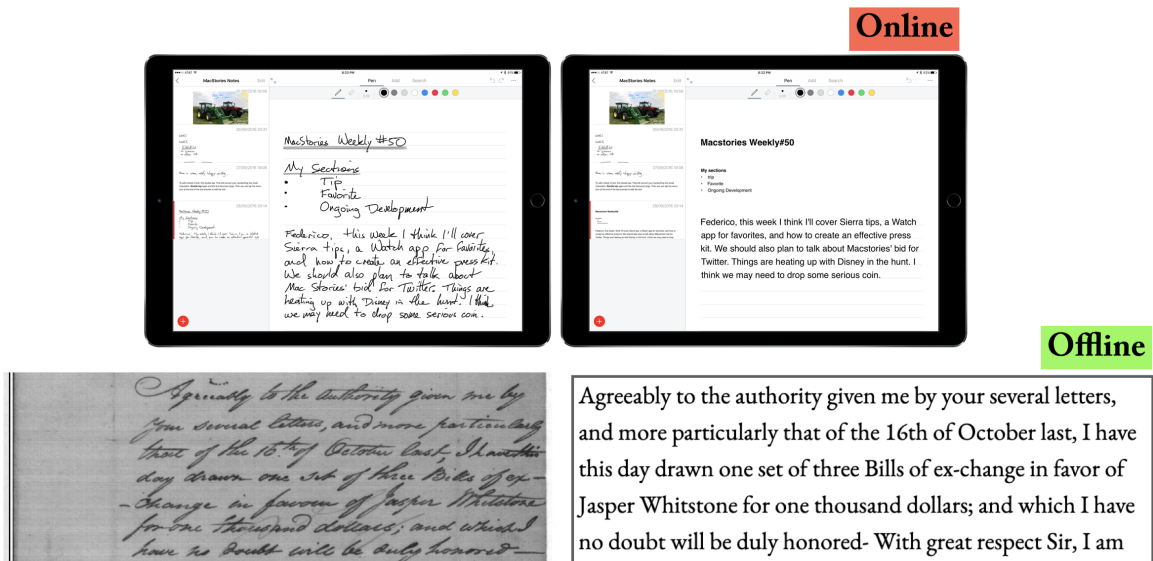 Online
MacStories Notes
Edit
8:23 PM
Pen Add Search
MacStories Weekly #50
My Sections
• Tip
• Favorite
• Ongoing Development
Federico, this week I think I'll cover
Sierra tips, a Watch app for favorites,
and how to create an effective press kit.
We should also plan to talk about
Mac Stories' bid for Twitter. Things are
heating up with Disney in the hunt. I think
we may need to drop some serious coin.
MacStories Notes
Edit
8:23 PM
Pen Add Search
Macstories Weekly#50
My sections
• trip
• Favorite
• Ongoing Development
Federico, this week I think I'll cover Sierra tips, a Watch
app for favorites, and how to create an effective press
kit. We should also plan to talk about Macstories' bid for
Twitter. Things are heating up with Disney in the hunt. I
think we may need to drop some serious coin.
Offline
Agreeably to the authority given me by
your several letters, and more particularly
that of the 16th of October last, I have this
day drawn one set of three Bills of ex-
-change in favour of Jasper Whitstone
for one thousand dollars; and which I
have no doubt will be duly honored-
Agreeably to the authority given me by your several letters,
and more particularly that of the 16th of October last, I have
this day drawn one set of three Bills of ex-change in favor of
Jasper Whitstone for one thousand dollars; and which I have
no doubt will be duly honored- With great respect Sir, I am